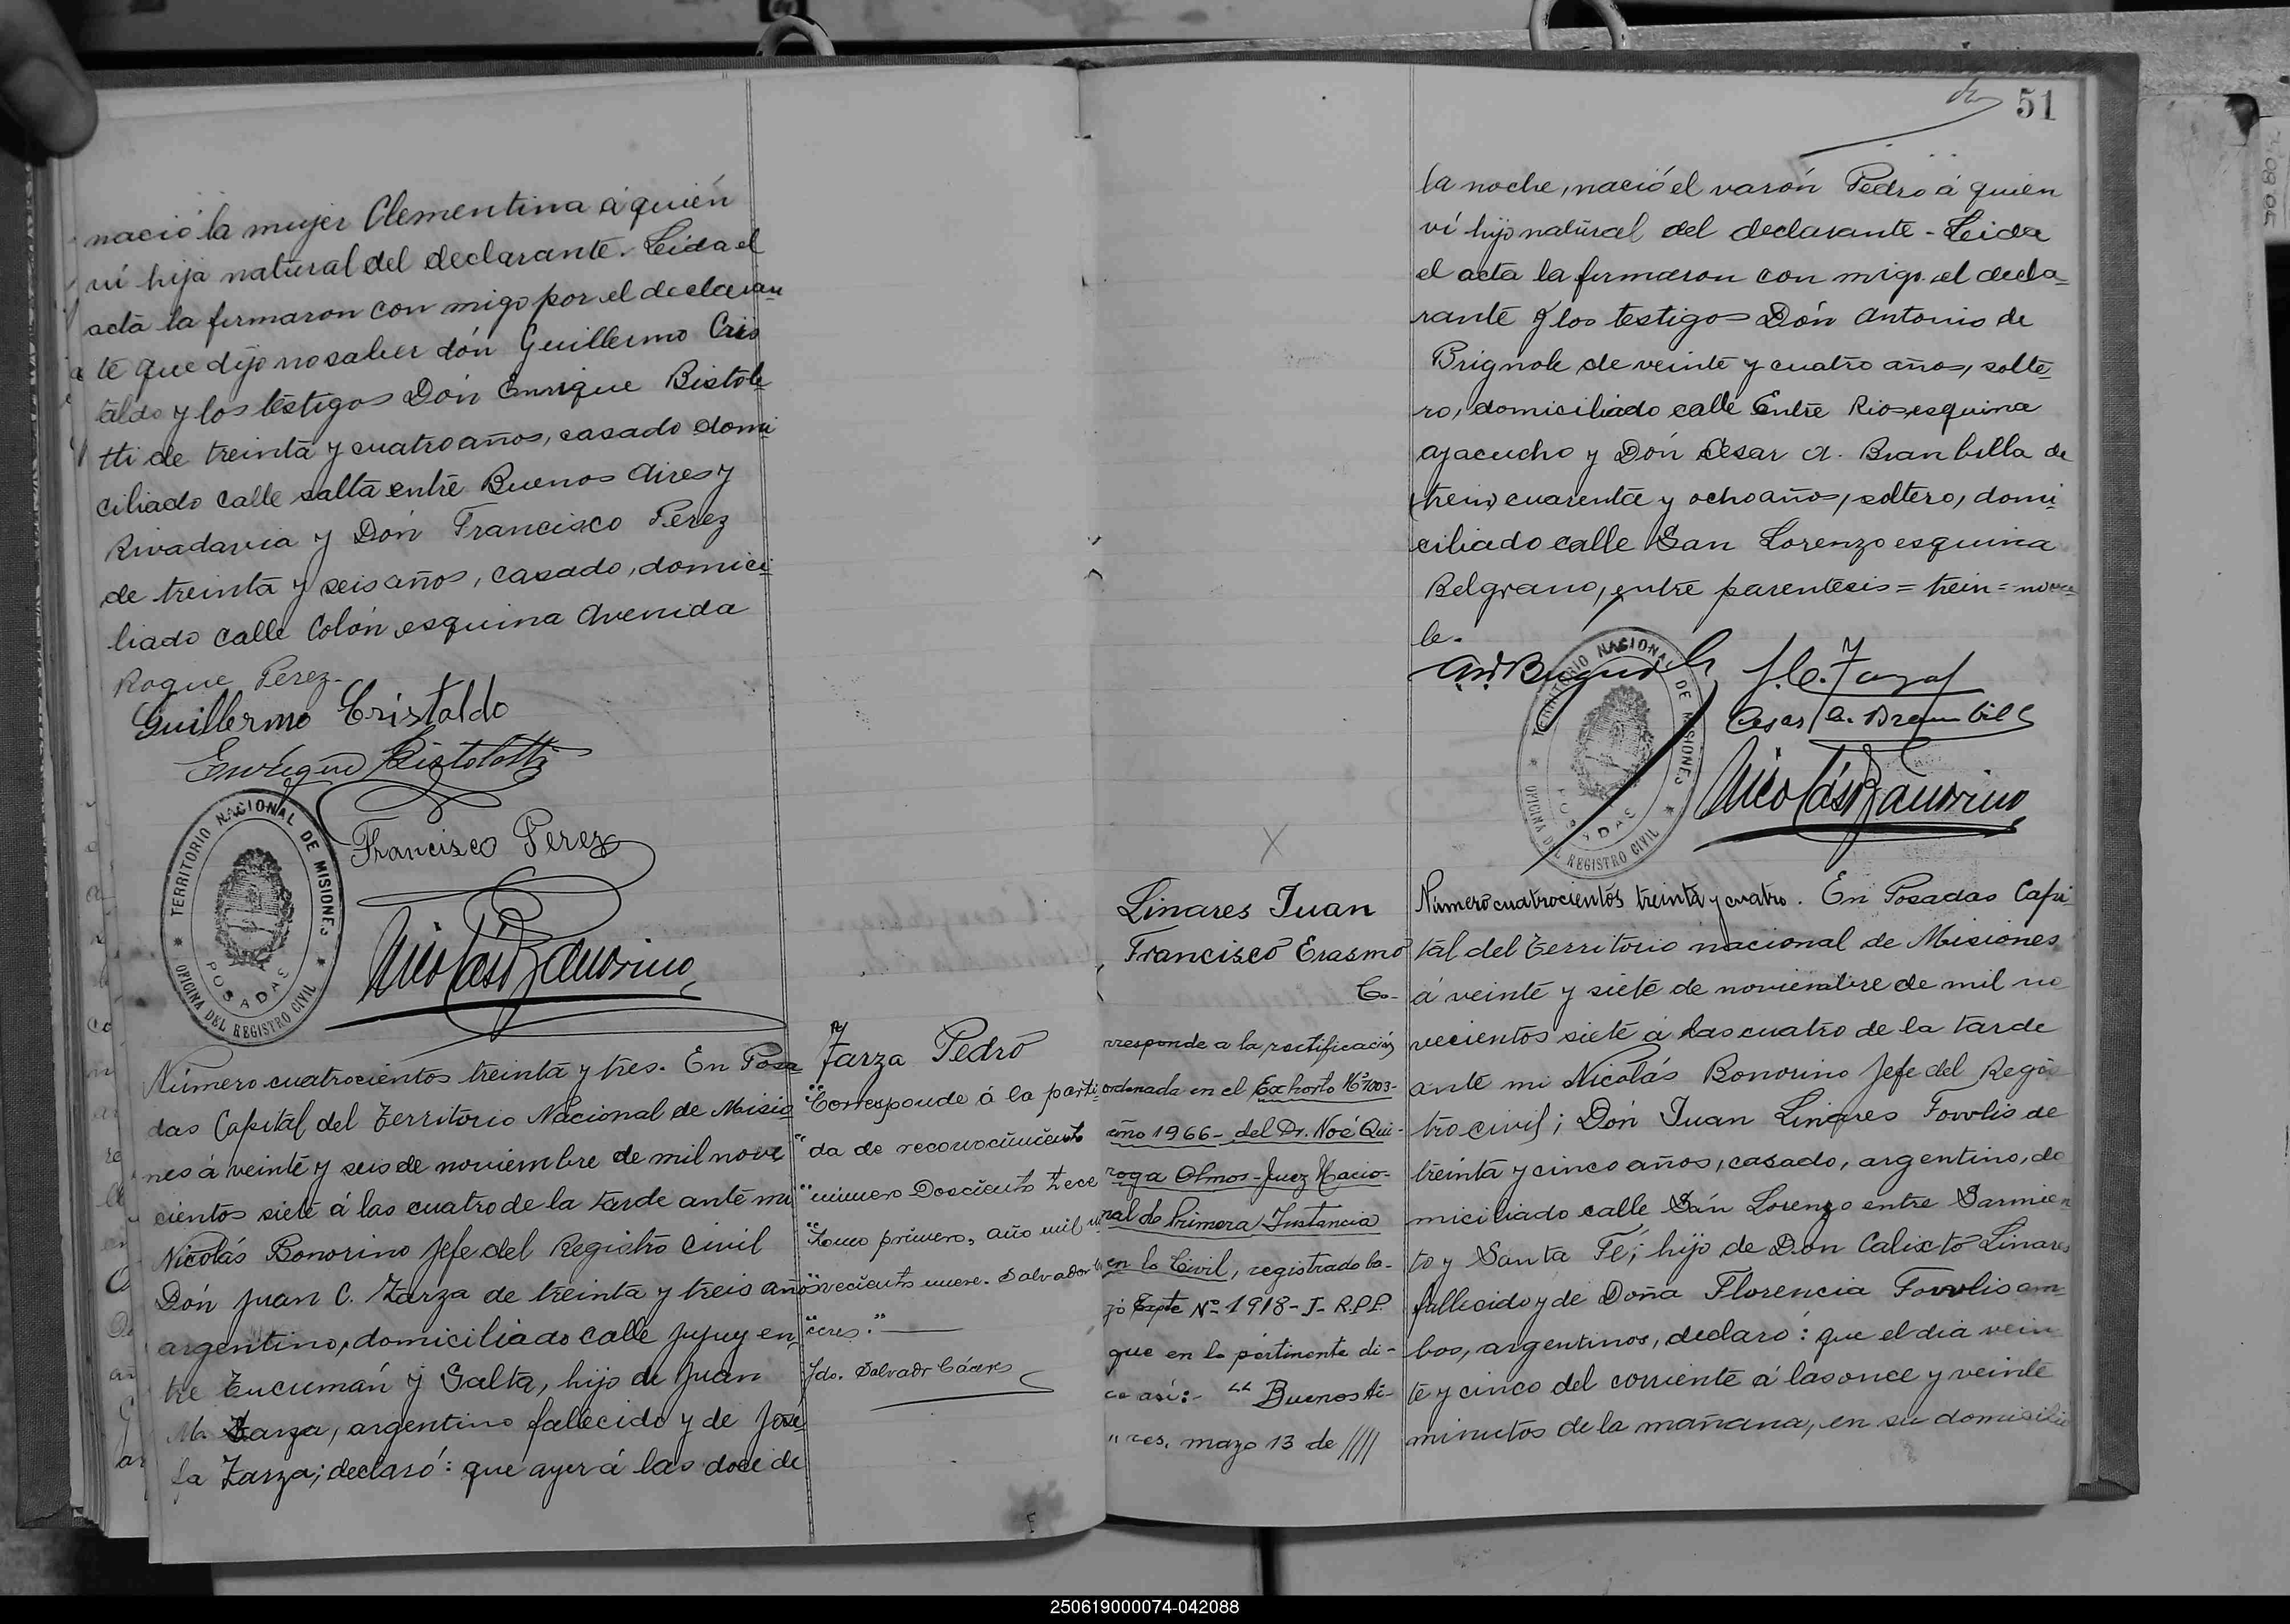 nació la mujer Clementina á quién
ví hija natural del declarante. Leida el
acta la firmaron con migo por el declaran
te que dijo no saber dón Guillermo Cris
taldo y los testigos Dón Enrique Bistole
tti de treinta y cuatro años, casado domi
ciliado calle salta entre Buenos Aires y
Rivadavia y Dón Francisco Perez
de treinta y seis años, casado, domici
liado calle Colón esquina Avenida
Roque Perez.
Guillermo Cristaldo
Enrique Bistoletti
Francisco Perez
Nicolás Bonorino
TERRITORIO NACIONAL DE MISIONES
POSADAS
OFICINA DEL REGISTRO CIVIL
Número cuatrocientos treinta y tres. En Posa
das Capital del Territorio Nacional de Misio
nes á veinte y seis de noviembre de mil nove
cientos siete á las cuatro de la tarde ante mi
Nicolás Bonorino Jefe del Registro Civil
Dón Juan C. Zarza de treinta y treis años
argentino, domiciliado calle Jujuy en
tre Tucumán y Salta, hijo de Juan
M. Zarza, argentino fallecido y de Jose
fa Zarza; declaró: que ayer á las doce de
Zarza Pedro
"Corresponde á la parti
"da de reconocimiento
"número Doscientos trece
"tomo primero, año mil no
"vecientos nueve. Salvador Cá
"ceres."
fdo. Salvador Cáceres
51
la noche, nació el varón Pedro á quien
ví hijo natural del declarante - Leida
el acta la firmaron con migo el decla=
rante y los testigos Dón Antonio de
Brignole de veinte y cuatro años, solte=
ro, domiciliado calle Entre Rios esquina
ayacucho y Dón Cesar A. Branbilla de
(trein) cuarenta y ocho años, soltero, domi
ciliado calle San Lorenzo esquina
Belgrano, entre parentesis = trein = no va
le.
J. C. Zarza
Cesar A. Brambilla
Nicolás Bonorino
TERRITORIO NACIONAL DE MISIONES
POSADAS
OFICINA DEL REGISTRO CIVIL
Linares Juan
Francisco Erasmo
Co-
rresponde a la rectificación
ordenada en el Exhorto Nº 7003-
año 1966- del Dr. Noé Qui-
roga Olmos-Juez Nacio-
nal de Primera Instancia
en lo Civil, registrado ba-
jo Expte Nº 1918-J-R.P.P.
que en lo pertinente di-
ce así:- "Buenos Ai-
"res, mayo 13 de ////
Número cuatrocientos treinta y cuatro. En Posadas Capi
tal del Territorio nacional de Misiones
á veinte y siete de noviembre de mil no
vecientos siete á las cuatro de la tarde
ante mi Nicolás Bonorino Jefe del Regis
tro civil; Dón Juan Linares Fovolis de
treinta y cinco años, casado, argentino, do
miciliado calle Sán Lorenzo entre Sarmien
to y Santa Fé; hijo de Don Calixto Linares
fallecido y de Doña Florencia Fovolis am
bos, argentinos, declaró: que el dia vein
te y cinco del corriente á las once y veinte
minutos de la mañana, en su domicilio
250619000074-042088